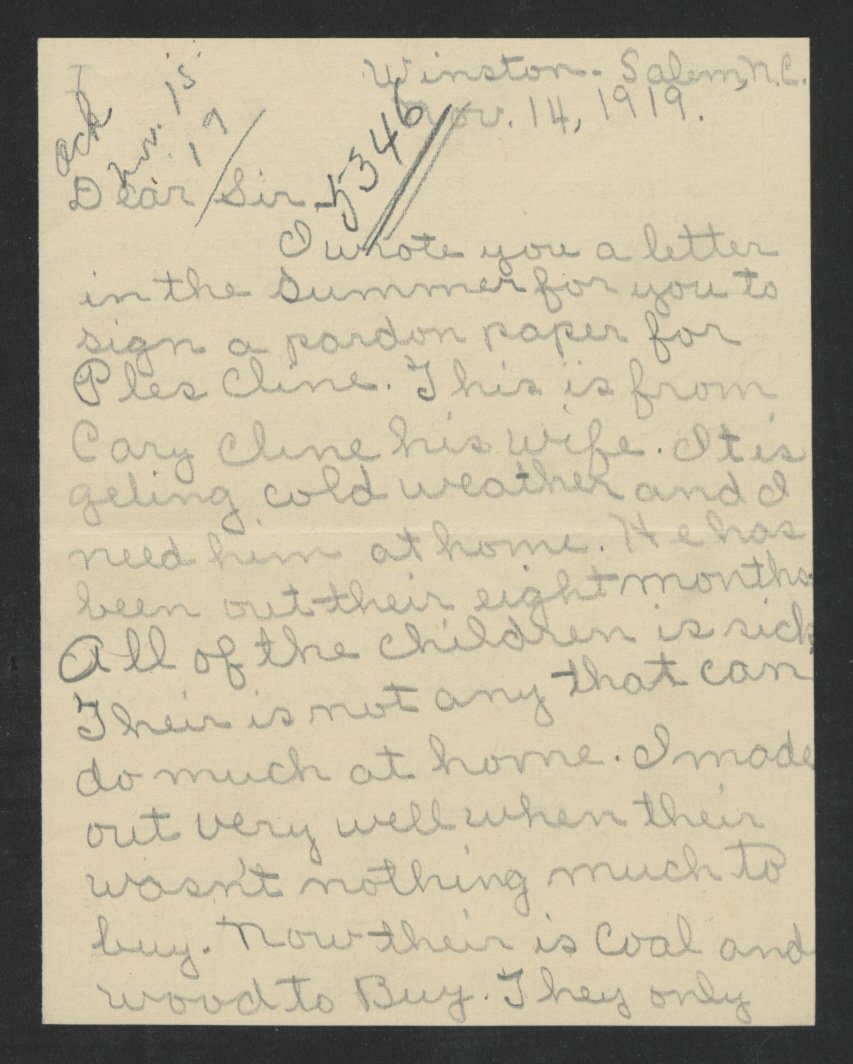 Winston-Salem, N.C.
Nov. 14, 1919.
ack
Nov. 15
19
5346
Dear Sir-
I wrote you a letter
in the Summer for you to
sign a pardon paper for
Ples Cline. This is from
Cary Cline his wife. It is
geting cold weather and I
need him at home. He has
been out their eight months.
All of the children is sick
Their is not any that can
do much at home. I made
out very well when their
wasn't nothing much to
buy. Now their is Coal and
wood to Buy. They only